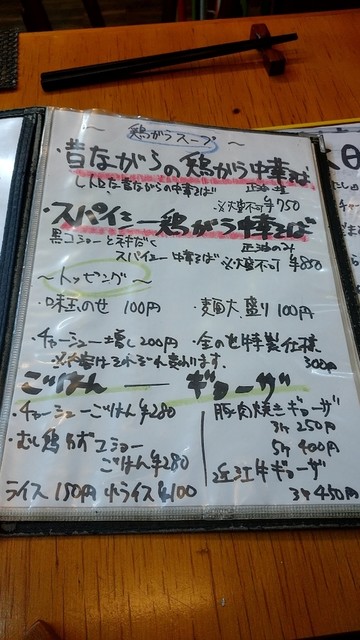 ~ 鶏がらスープ ~
・昔ながらの鶏がら中華そば
しんとな昔ながらの中華そば 正油
※大盛不可 ¥750
・スパイシー鶏がら中華そば
黒コショーと 正油のみ
スパイシー中華そば ※大盛不可 ¥850
~トッピング~
・味玉のせ 100円 ・麺大盛り 100円
・チャーシュー増し 200円 ・全のせ特製仕様
※内容はそれぞれ変わります。 300円
ごはん — ギョーザ
・チャーシューごはん ¥280 豚肉焼きギョーザ
3ケ 250円
・むし鶏ねぎコショー 5ケ 400円
ごはん ¥280 近江牛ギョーザ
ライス 150円 小ライス ¥100 3ケ 450円